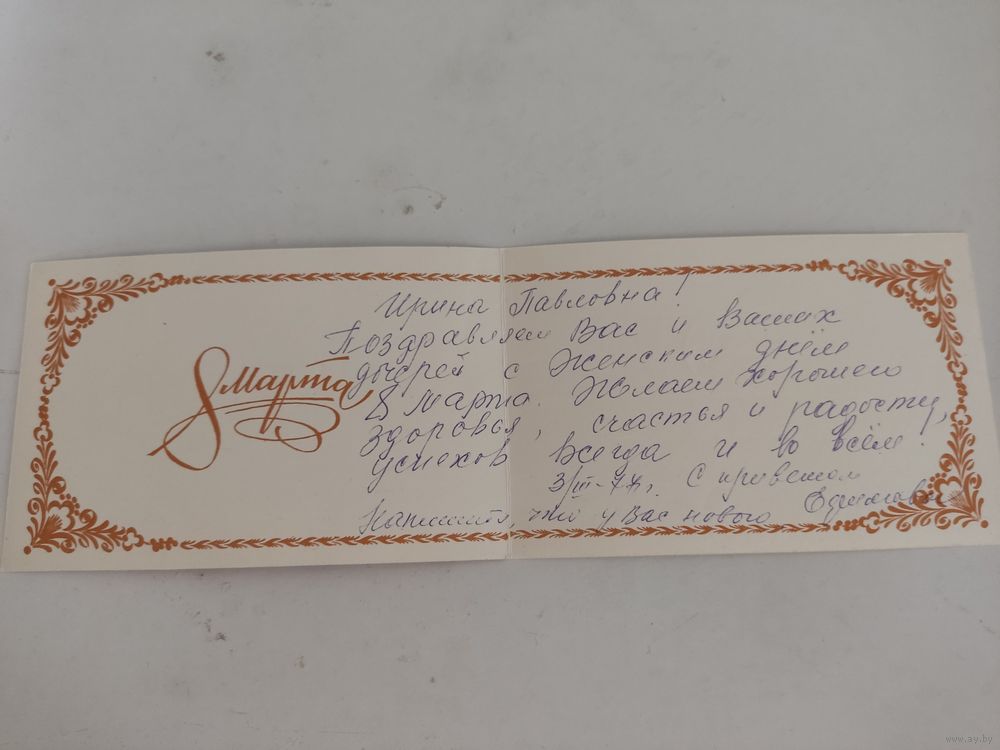 8 Марта
Ирина Павловна!
Поздравляем Вас и Ваших
дочерей с Женским днём
8 Марта. Желаем хорошего
здоровья, счастья и радости,
успехов всегда и во всём.
3/III-77г. С приветом
Напишите, что у Вас нового
www.ay.by